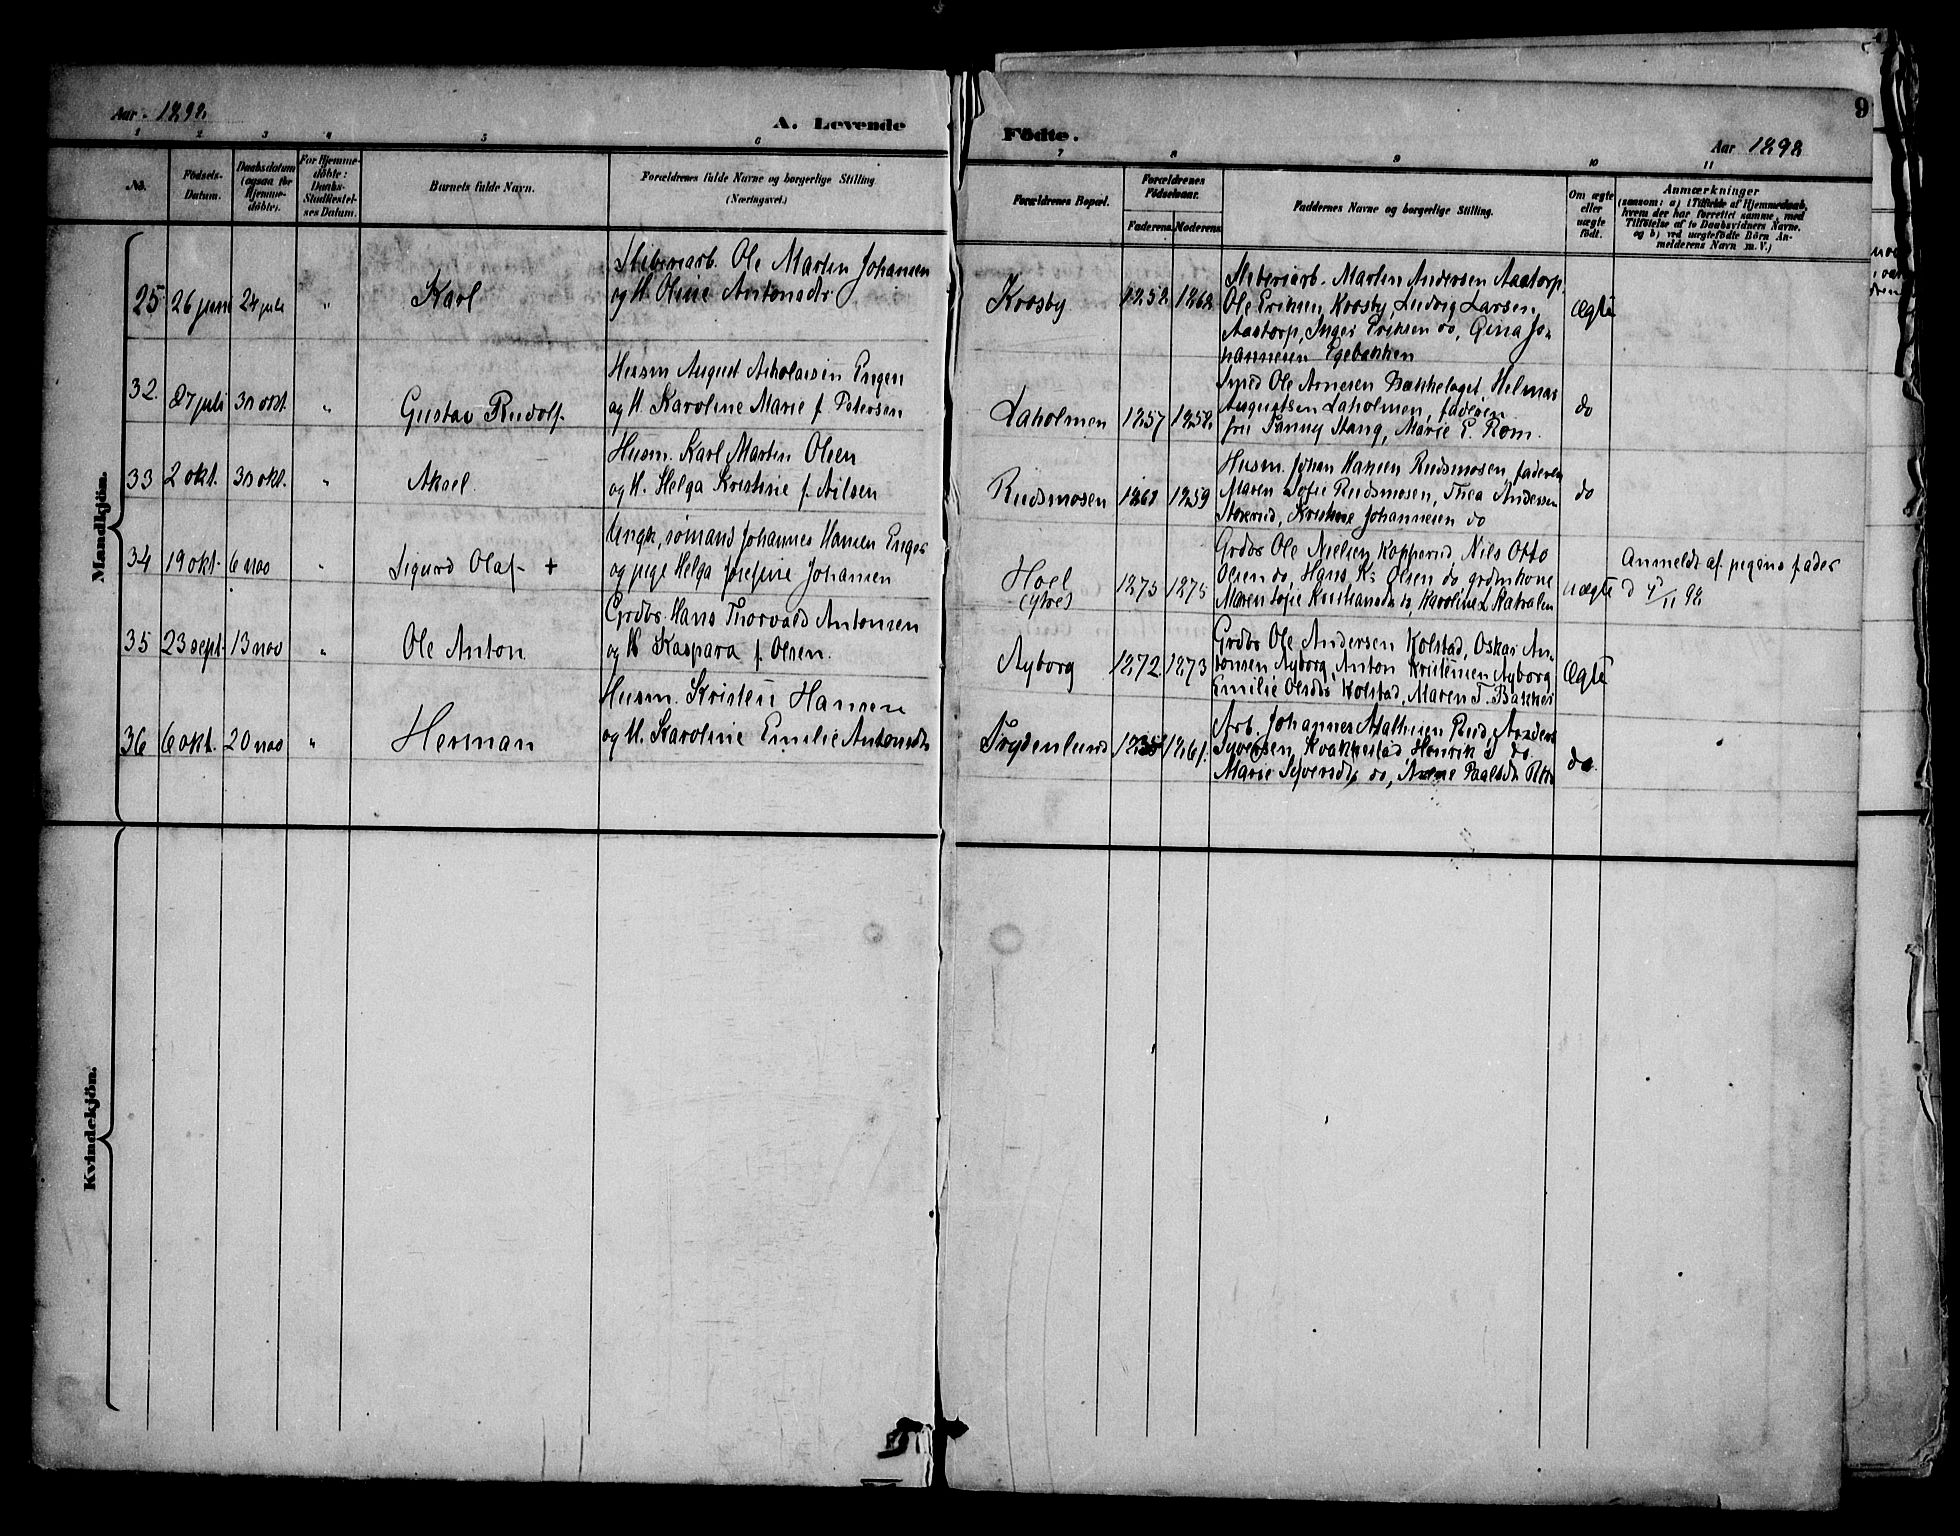 Aar 1898.
A. Levende
Födte.
Aar 1898
9
1 2 3 4 5 6 7 8 9 10 11
No.
Födsels-
Datum.
Daabsdatum
(ogsaa for
Hjemme-
döbte).
For Hjemme-
döbte:
Daabs-
Stadfæstel-
ses Datum.
Barnets fulde Navn.
Forældrenes fulde Navne og borgerlige Stilling
(Næringsvei.)
Forældrenes Bopæl.
Forældrenes
Födselsaar.
Faderens. Moderens.
Faddernes Navne og borgerlige Stilling.
Om ægte
eller
uægte
födt.
Anmærkninger
(saasom: a) i Tilfælde af Hjemmedaab,
hvem der har forrettet samme, med
Tilföielse af to Daabsvidners Navne.
og b) ved uægtefödte Börn An-
melderens Navn m. V.)
Mandkjön.
25 26 juni 24 juli " Karl
Sliberiarb. Ole Martin Johansen
og H. Oline Antonsdtr
Krosby 1858 1868
Sliberiarb. Martin Andersen Aastorp,
Ole Eriksen Krosby, Ludvig Larsen
Aastorp, Inger Eriksen do, Gina Jo-
hannesen Egebakken
Ægte
32 27 juli 30 okt. " Gustav Rudolf
Husm August Engen
og H. Karoline Marie f. Petersen
Laholmen 1857 1858
Smed Ole Arnesen Bakkelaget, Helmer
Augustsen Laholmen, faderen
fru Fanny Stang, Marie E. Rom.
do
33 2 okt. 30 okt. " Aksel
Husm. Karl Martin Olsen
og H. Helga Kristine f. Nilsen
Rudsmosen 1861 1859
Husm. Johan Hansen Rudsmosen, faderen
Maren Sofie Rudsmosen, Thea Andersen
Kristine Johannesen do
do
34 19 okt. 6 nov " Sigurd Olaf +
Ungk, sömand Johannes Hansen Enger
og pige Helga Josefine Johansen
Hoel
(ytre)
1875 1875
Grdbr Ole Nielsen Kopperud Nils Otto
Olsen do, Hans K. Olsen do, grdmkone
Maren Sofie Kristiansdtr do, Karoline L
uægte
Anmeldt af pigens fader
d 4/11 98
35 23 sept. 13 nov " Ole Anton
Grdbr. Hans Thorvald Antonsen
og H Kaspara f. Olsen.
Nyborg 1872 1873
Grdbr Ole Andersen Kolstad, Oskar An-
tonsen Nyborg, Anton Kristensen Nyborg
Emilie Olsdtr Kolstad, Maren T. Bakker
Ægte
36 6 okt. 20 nov " Herman
Husm. Kristen Hansen
og H. Karoline Emilie Antonsdtr
Frydenlund 1861.
Arb. Johannes Mathisen Rud, Anders
Syversen, Krakkestad, Henrik S do
Marie Syversdtr do, Anne Paalsdtr
do
Kvindekjön.